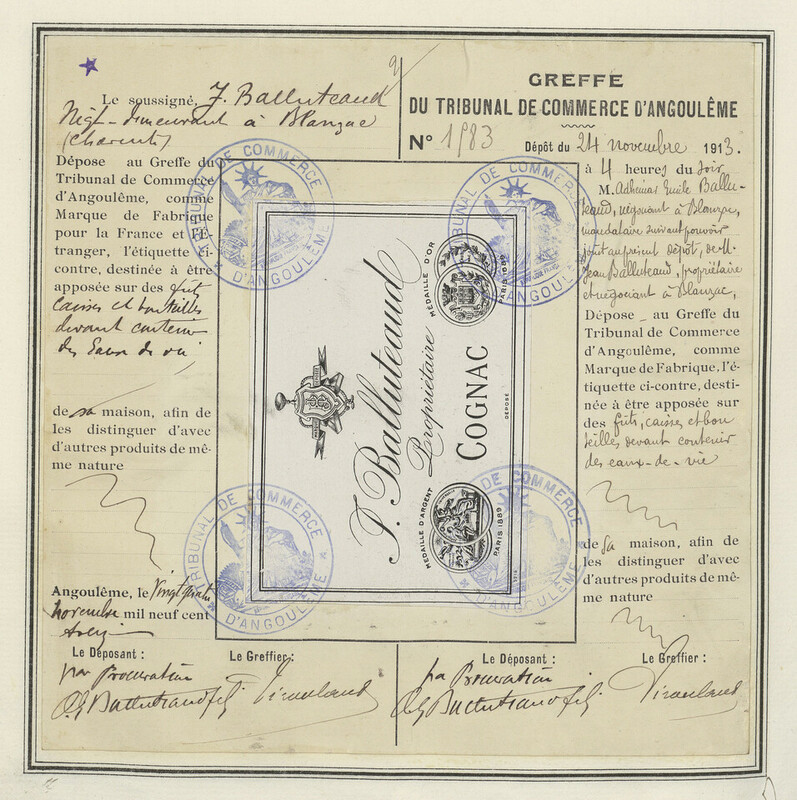 Le soussigné, J. Balluteaud
Négt demeurant à Blanzac
(Charente)
Dépose au Greffe du
Tribunal de Commerce
d'Angoulême, comme
Marque de Fabrique
pour la France et l'É-
tranger, l'étiquette ci-
contre, destinée à être
apposée sur des fûts
caisses et bouteilles
devant contenir
des Eaux de vie
de sa maison, afin de
les distinguer d'avec
d'autres produits de mê-
me nature
Angoulême, le Vingt quatre
novembre mil neuf cent
treize
Le Déposant :
Le Greffier :
par Procuration
Balluteaud fils
GREFFE
DU TRIBUNAL DE COMMERCE D'ANGOULÊME
N° 1983
Dépôt du 24 novembre 1913.
à 4 heures du soir
M. Adhémar Emile Ballu-
teaud, négociant à Blanzac,
mandataire suivant pouvoir
joint au présent dépôt, de M.
Jean Balluteaud, propriétaire
et négociant à Blanzac,
Dépose au Greffe du
Tribunal de Commerce
d'Angoulême, comme
Marque de Fabrique, l'é-
tiquette ci-contre, desti-
née à être apposée sur
des fûts, caisses et bou
teilles devant contenir
des eaux-de-vie
de sa maison, afin de
les distinguer d'avec
d'autres produits de mê-
me nature
Le Déposant :
Le Greffier :
par Procuration
Balluteaud fils
J. Balluteaud
Propriétaire
COGNAC
MÉDAILLE D'OR
PARIS 1889
MÉDAILLE D'ARGENT
PARIS 1889
DÉPOSÉ
TRIBUNAL DE COMMERCE
D'ANGOULÊME
TRIBUNAL DE COMMERCE
D'ANGOULÊME
TRIBUNAL DE COMMERCE
D'ANGOULÊME
TRIBUNAL DE COMMERCE
D'ANGOULÊME